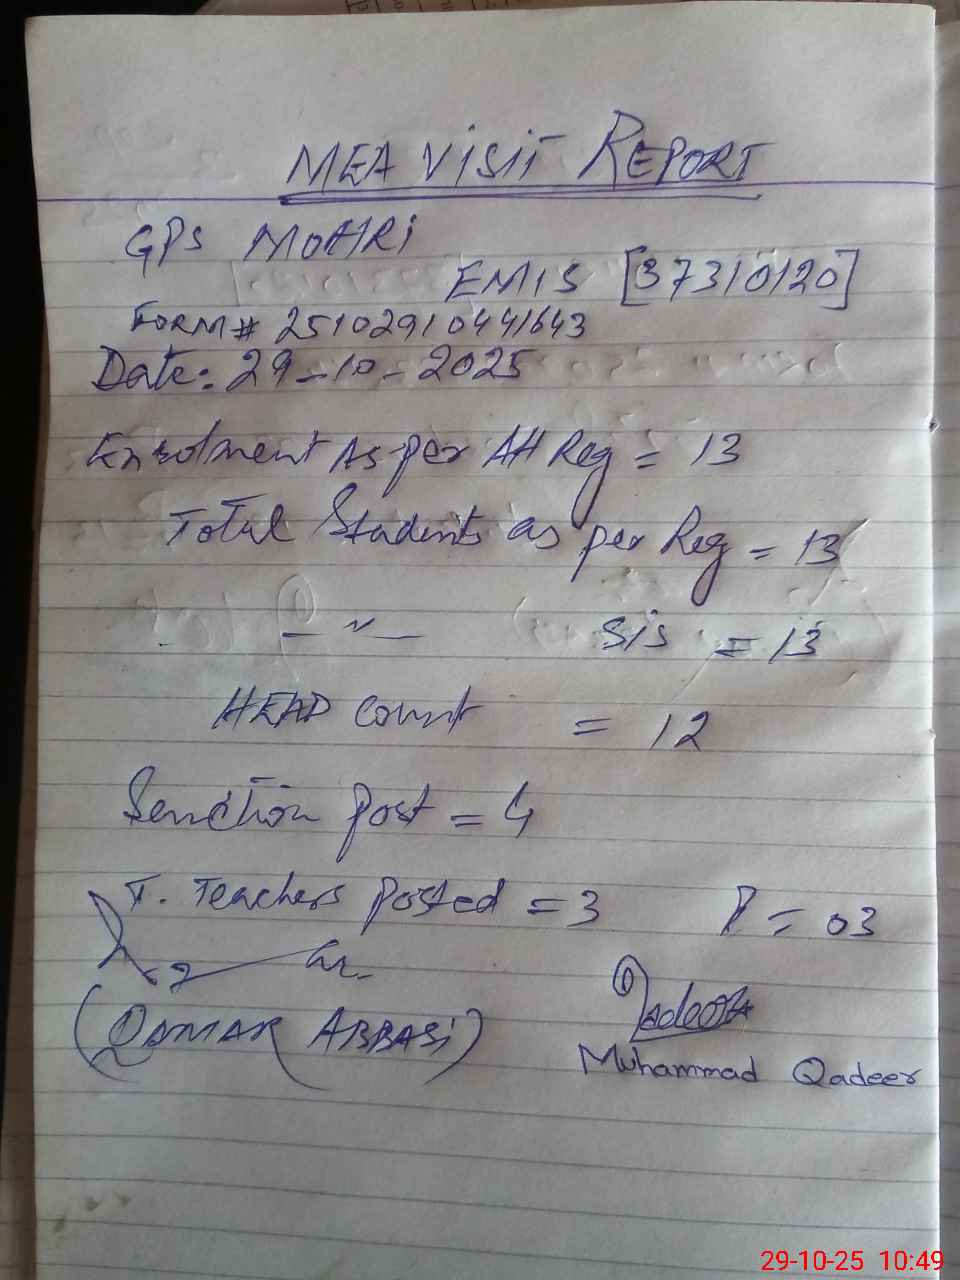 MEA VISIT REPORT
GPS MOHRI
EMIS [37310120]
FORM# 25102910441643
Date: 29-10-2025
Enrolment As per AH Reg = 13
Total Students as per Reg = 13
— " — SIS = 13
HEAD count = 12
Senction Post = 4
T. Teachers Posted = 3 P = 03
(QAMAR ABBASI)
Qadeer
Muhammad Qadeer
29-10-25 10:49